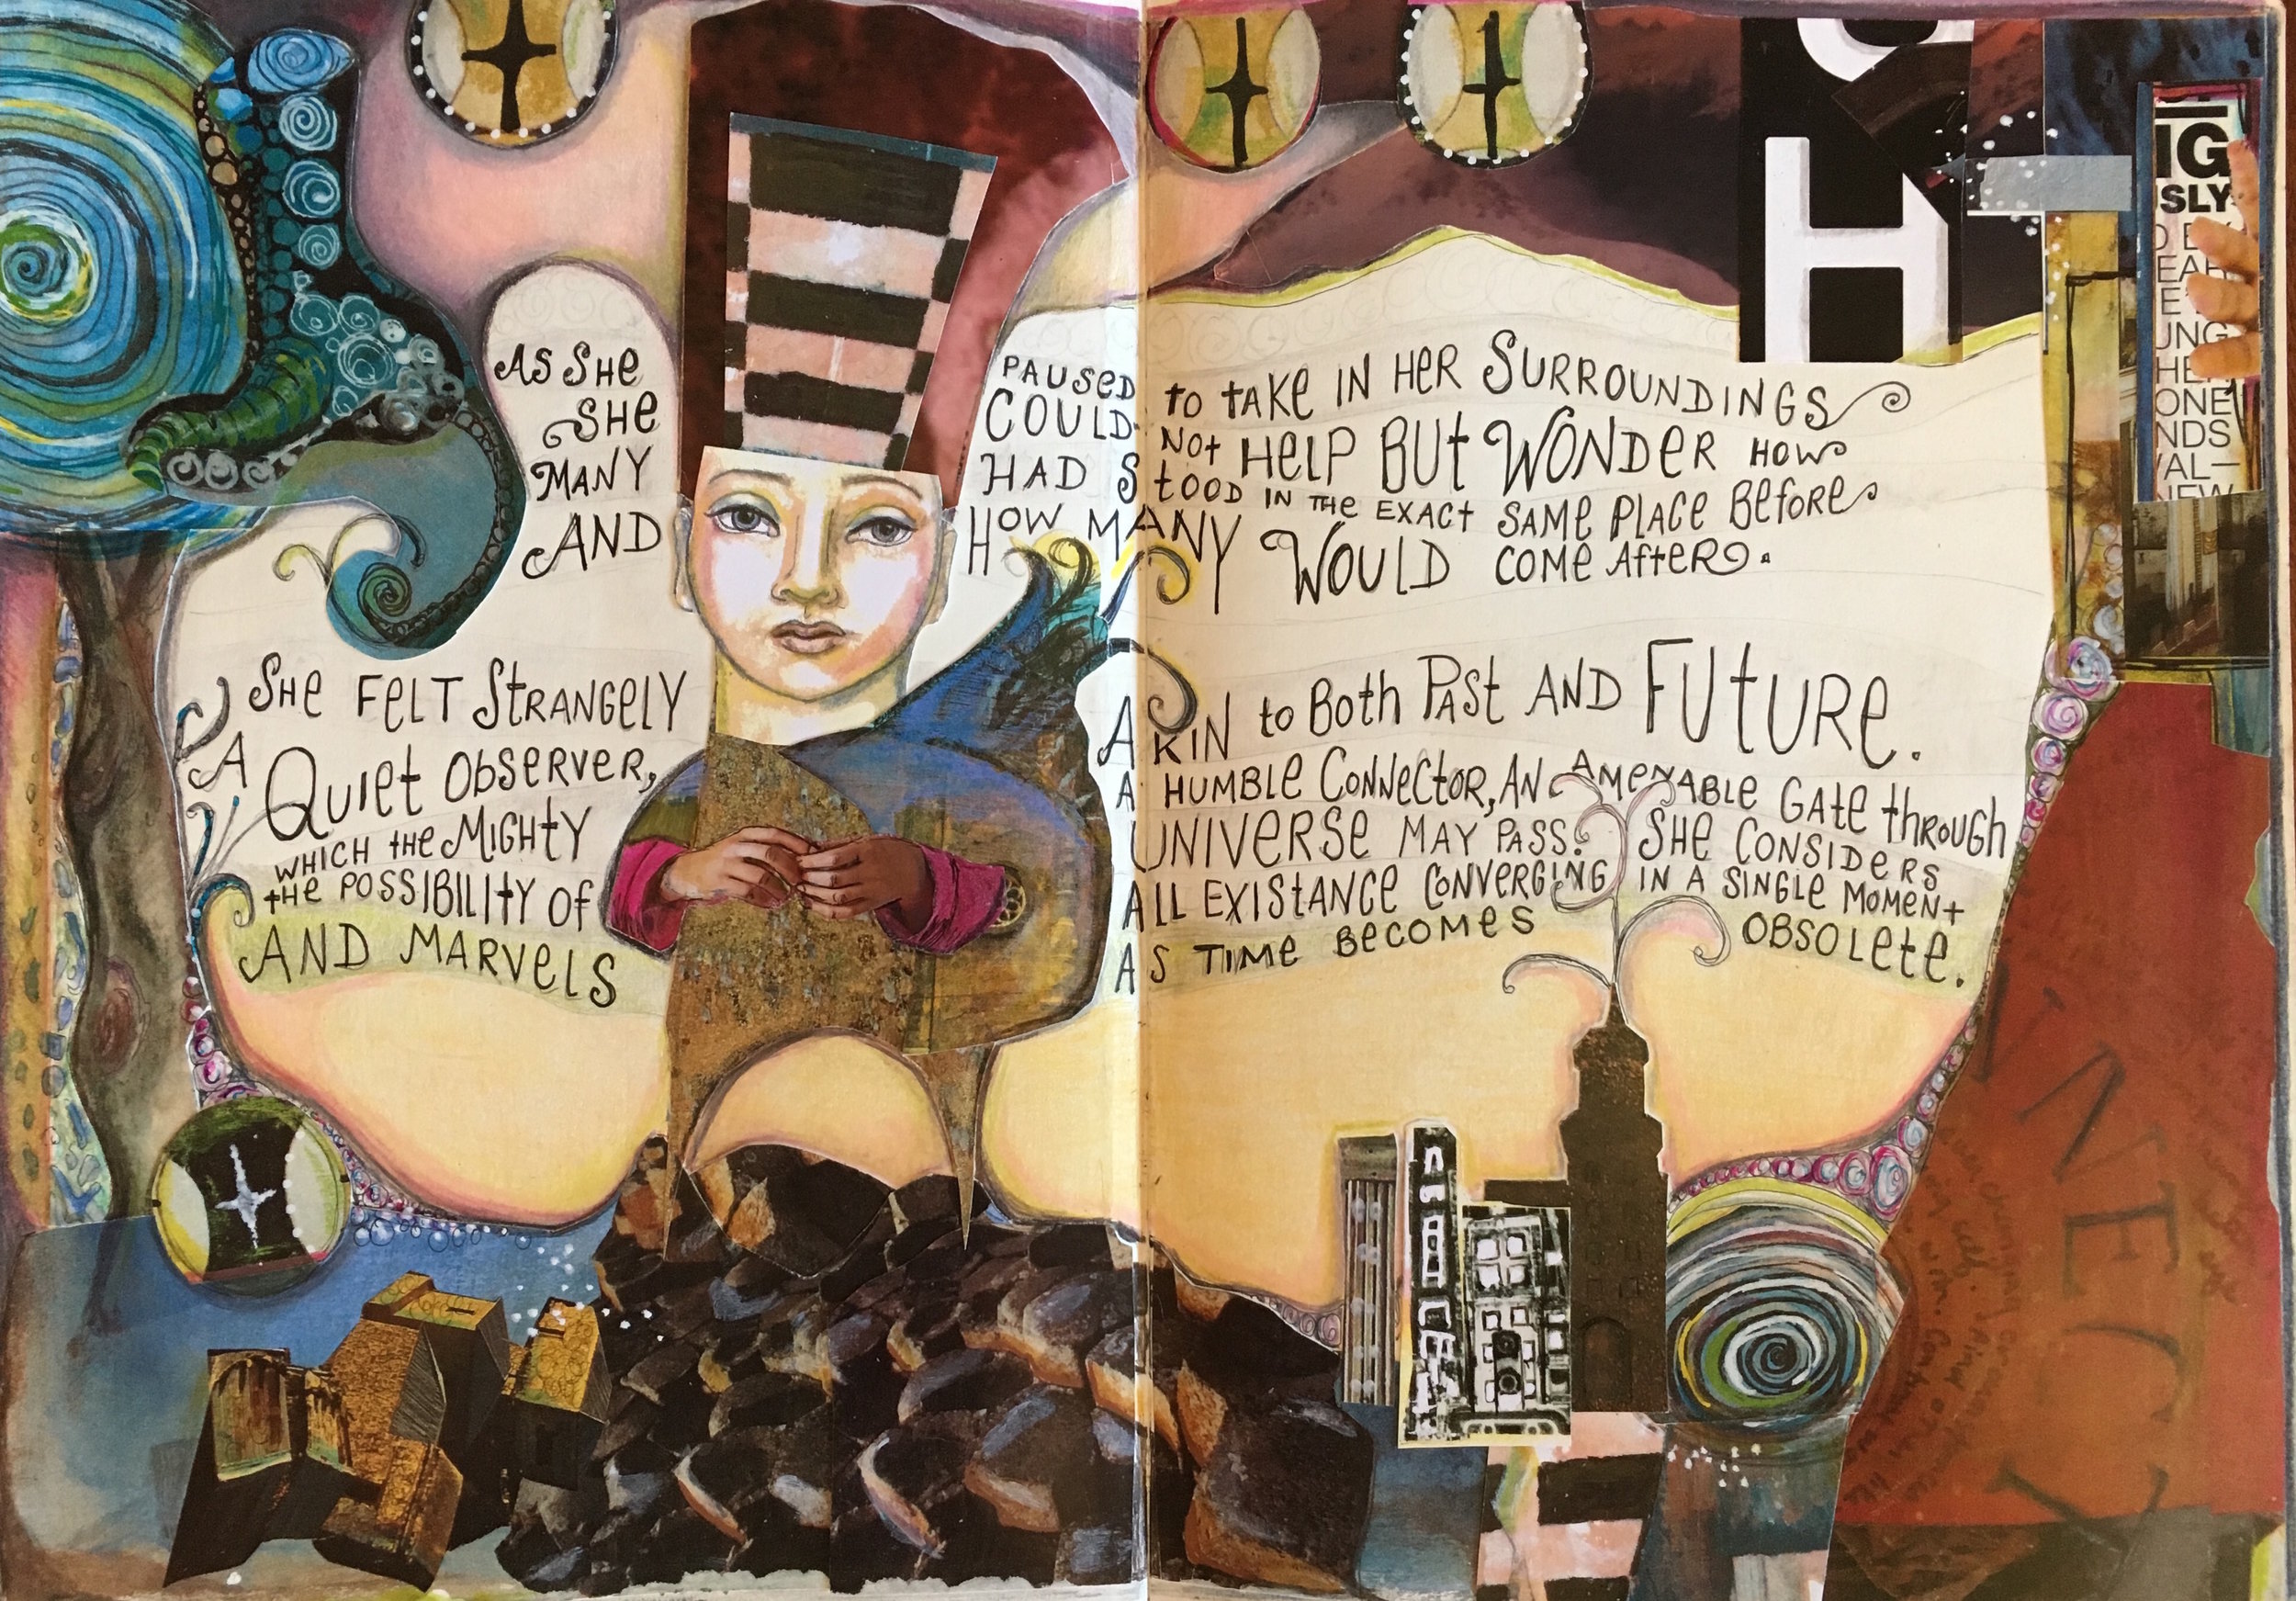 AS SHE PAUSED to tAKE IN HER SURROUNDINGS
SHE COULD NOt HELP BUt WONDER HOW
MANY HAD StOOD IN tHE EXACt SAME PLACE BEfORE
AND HOW MANY WOULD COME AftER.
SHE FELT StRANGELY AKIN to Both PASt AND FUtURE.
A QUIEt OBSERVER, A HUMBLE CONNECtOR, AN AMENABLE GAtE thROUGh
WHICH tHE MIGHtY UNIVERSE MAY PASS. SHE CONSIDERS
tHE POSSIBILItY Of ALL EXIStANCE CONVERGING IN A SINGLE MOMENt
AND MARVELS AS TIME BECOMES OBSOLEtE.
H
IG
SLY
EAR
UNG
HER
ONE
NDS
VAL—
NEW